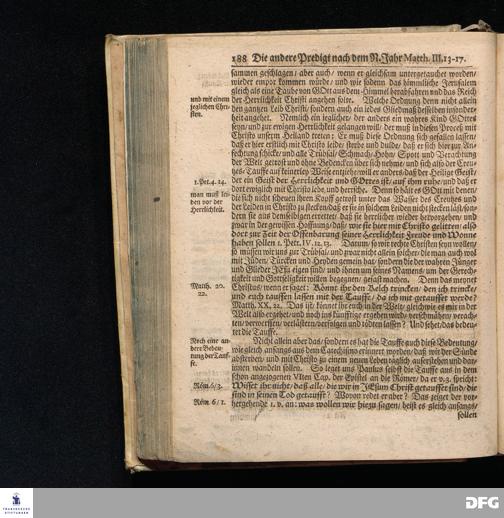 188 Die andere Predigt nach dem N. Jahr Matth. III. 13-17.
sammen geschlagen/ aber auch/ wenn er gleichsam untergetauchet worden/
wieder empor kommen würde/ und wie sodenn das himmlische Jerusalem
gleich als eine Taube von GOtt aus dem Himmel herabfahren und das Reich
der Herrlichkeit Christi angehen solte. Welche Ordnung denn nicht allein
und mit einem jeglichen Christen.
den gantzen Leib Christi/ sondern auch ein iedes Gliedmaß desselben insonderheit
angehet. Nemlich ein ieglicher/ der anders ein wahres Kind GOttes
seyn/ und zur ewigen Herrlichkeit gelangen will/ der muß in diesen Proceß mit
Christo unserm Heiland treten: Er muß diese Ordnung sich gefallen lassen/
daß er hier erstlich mit Christo leide/ sterbe und dulde/ daß er sich hier zur Anfechtung
schicke/ und alle Trübsal/ Schmach/ Hohn/ Spott und Verachtung
der Welt getrost und ohne Bedencken über sich nehme/ und sich also der Creutzes
Tauffe auf keinerley Weise entziehe/ will er anders/ daß der Heilige Geist/
1. Pet. 4. 14.
der ein Geist der Herrlichkeit und GOttes ist/ auf ihm ruhe/ und daß er
dort ewiglich mit Christo lebe/ und herrsche. Denn so hält es GOtt mit denen/
man muß leiden vor der Herrlichkeit.
die sich nicht scheuen ihren Kopff getrost unter das Wasser des Creutzes und
der Leiden in Christo zu stecken/ daß er sie in solchem Leiden nicht stecken läst/ sondern
sie aus demselbigen errettet/ daß sie herrlicher wieder hervorgehen/ und
zwar in der gewissen Hoffnung/ daß/ wie sie hier mit Christo gelitten/ also
dort zur Zeit der Offenbarung seiner Herrlichkeit Freude und Wonne
haben sollen 1. Petr. IV. 12. 13. Darum/ so wir rechte Christen seyn wollen/
so müssen wir uns zur Trübsal/ und zwar nicht allein solcher/ die man auch wol
mit Jüden/ Türcken und Heyden gemein hat/ sondern die der wahren Jünger
und Glieder JEsu eigen sind/ und ihnen um seines Namens/ um der Gerechtigkeit
und Gottseligkeit willen begegnet/ gefast machen. Denn das meynet
Matth. 20. 22.
Christus/ wenn er saget: Könnt ihr den Kelch trincken/ den ich trincke/
und euch tauffen lassen mit der Tauffe/ da ich mit getauffet werde?
Matth. XX, 22. Das ist/ könnet ihr euch in der Welt/ gleichwie es mir in der
Welt also ergehet/ und noch ins künfftige ergehen wird/ verschmähen/ verachten/
verwerffen/ verlästern/ verfolgen und tödten lassen? Und sehet/ das bedeutet
die Tauffe.
Noch eine andere Bedeutung der Tauffe.
Nicht allein aber das/ sondern es hat die Tauffe auch diese Bedeutung/
wie gleich anfangs aus dem Catechismo erinnert worden/ daß wir der Sünde
absterben/ und mit Christo zu einem neuen Leben täglich auferstehen und darinnen
wandeln sollen. So leget uns Paulus selbst die Tauffe aus in dem
schon angezogenen VIten Cap. der Epistel an die Römer/ da er v. 3. spricht:
Röm. 6/3.
Wisset ihr nicht/ daß alle/ die wir in JEsum Christ getauffet sind/ die
sind in seinen Tod getaufft? Wovon redet er aber? Das zeiget der vorhergehende
Röm. 6/1.
1. v. an: was wollen wir hiezu sagen/ heist es gleich anfangs/
sollen
FRANCKESCHE STIFTUNGEN
DFG